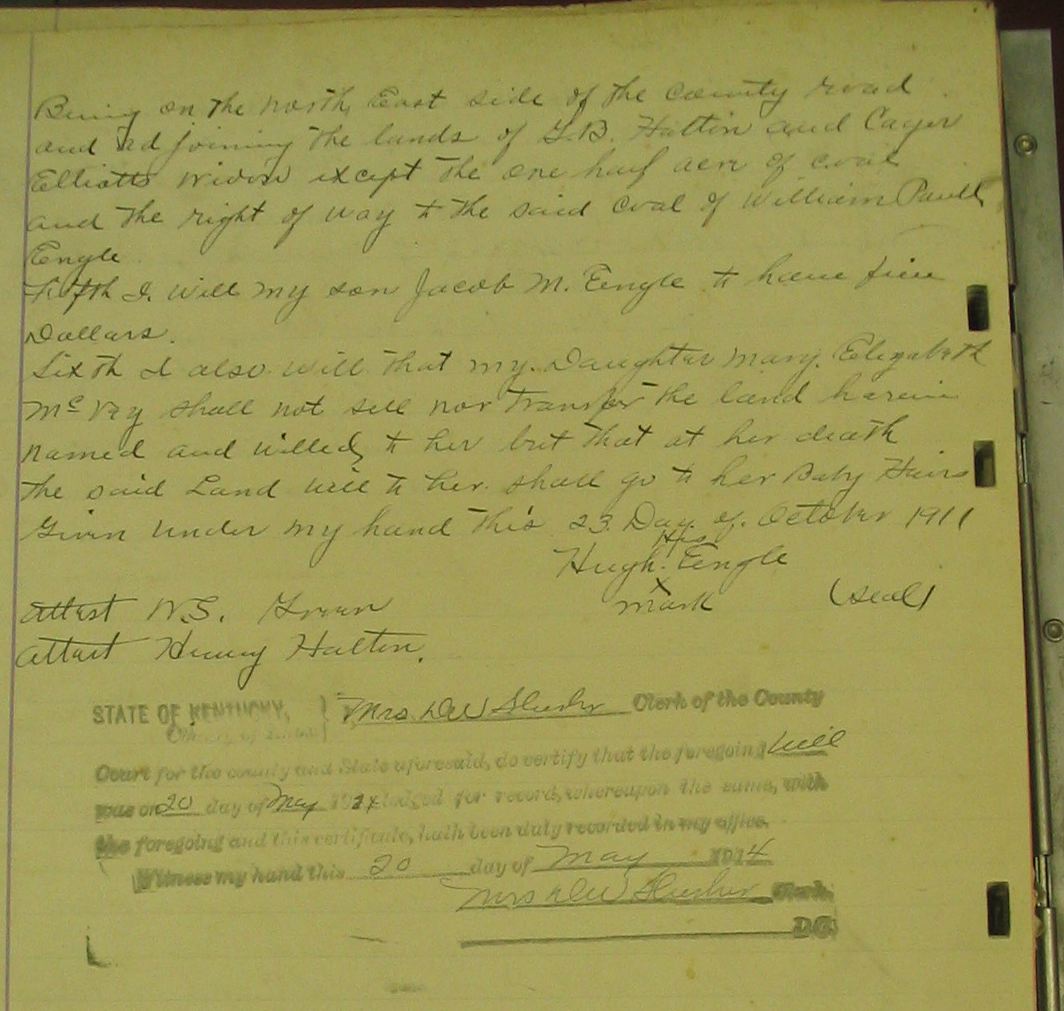 Being on the North East side of the county road
and adjoining the lands of G.B. Hatton and Cager
Elliotts widow except the one half acre of coal
and the right of way to the said coal of William Paull
Engle
Fifth I will my son Jacob M. Engle to have five
Dollars.
Sixth I also will that my Daughter Mary. Elizabeth
McVey shall not sell nor transfer the land herein
named and willed to her but that at her death
the said Land will to her. shall go to her Baby Heirs
Given under my hand this 23 Day of October 1911
His
Hugh. Engle
x
mark (seal)
Attest W.S. Green
Attest Henry Hatton.
STATE OF KENTUCKY, } Mrs D W Slusher Clerk of the County
Court for the county and State aforesaid, do certify that the foregoing will
was on 20 day of May 1914 lodged for record, whereupon the same, with
the foregoing and this certificate, hath been duly recorded in my office.
Witness my hand this 20 day of May 1914
Mrs D W Slusher Clerk.
D.C.